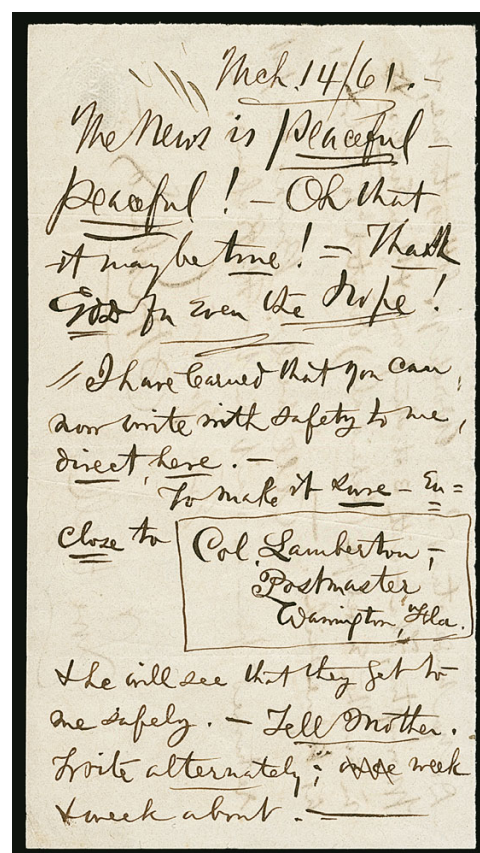 Mch. 14/61. –
The News is peaceful –
peaceful! – Oh that
it may be true! – Thank
God for even the hope!
// I have learned that you can,
now write with safety to me,
direct, here. –
To make it sure – En=
close to
Col. Lamberton,
Postmaster,
Warrington, Fla.
& he will see that they get to
me safely. – Tell Mother.
Write alternately; week
& week about. –